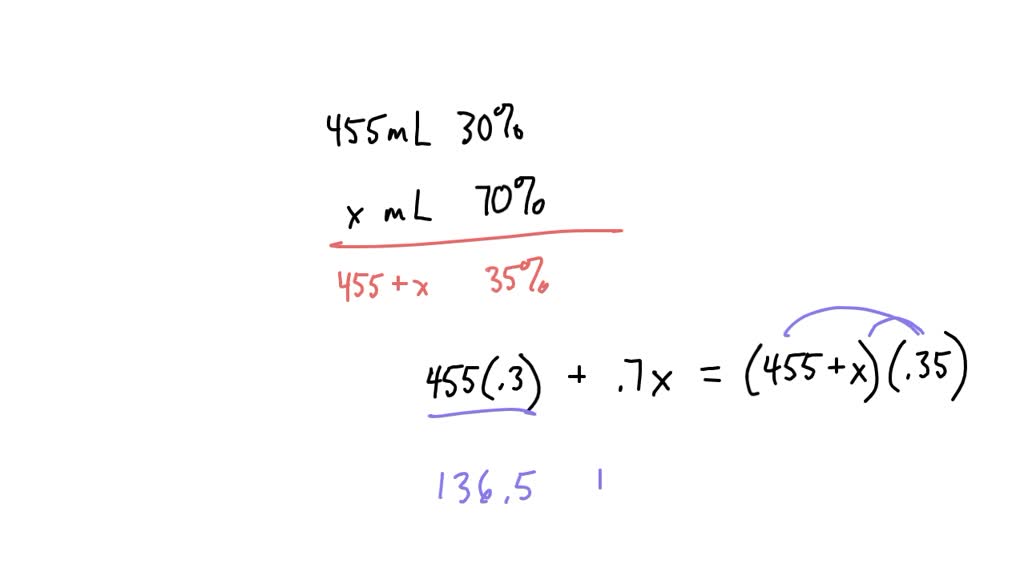 455mL 30%
x mL 70%
455 + x 35%
455(.3) + .7x = (455+x)(.35)
136.5 |